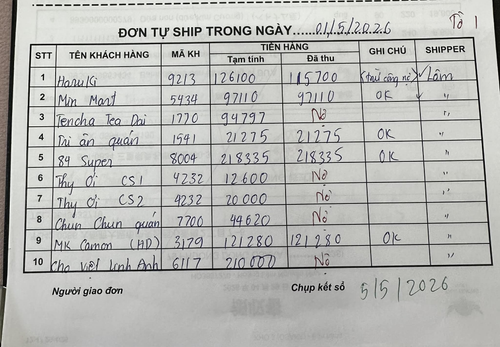 Tờ 1
ĐƠN TỰ SHIP TRONG NGÀY.....01/5/2026
STT TÊN KHÁCH HÀNG MÃ KH TIỀN HÀNG GHI CHÚ SHIPPER
Tạm tính Đã thu
1 Haruki 9213 126100 115700 (trừ công nợ) Lâm
2 Min Mart 5434 97110 97110 OK "
3 Tencha Tea Dai 1770 94797 Nợ "
4 Tri ân quán 1541 21275 21275 OK "
5 84 Super 8004 218335 218335 OK "
6 Thy ơi CS1 4232 12600 Nợ "
7 Thy ơi CS2 4232 20.000 Nợ "
8 Chun Chun quán 7700 44620 Nợ "
9 MK Camon (HD) 3179 121280 121280 OK "
10 Cho Việt Linh Anh 6117 210.000 Nợ "
Người giao đơn Chụp kết sổ 5/5/2026